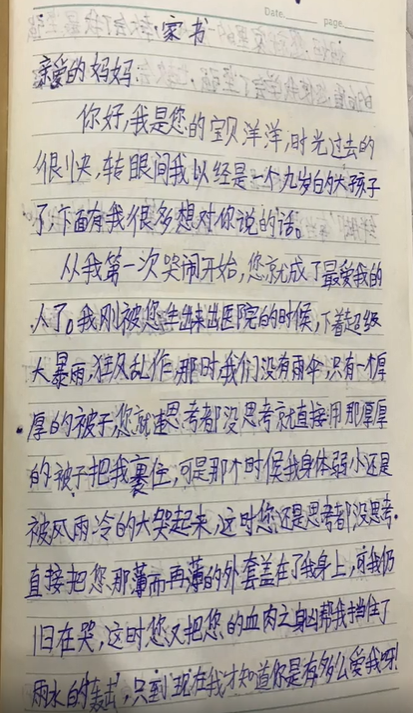 Date. page.
家书
亲爱的妈妈:
你好,我是您的宝贝洋洋,时光过去的
很快,转眼间我以经是一个九岁的大孩子
了,下面有我很多想对你说的话。
从我第一次哭闹开始,您就成了最爱我的
人了。我刚被您生出来出医院的时候,下着超级
大暴雨,狂风乱作,那时我们没有雨伞,只有一个厚
厚的被子,您就连思考都没思考就直接用那厚厚
的被子把我裹住,可是那个时候我身体弱小还是
被风雨冷的大哭起来,这时您还是思考都没思考
直接把您那薄而再薄的外套盖在了我身上,可我仍
旧在哭,这时您又把您的血肉之身凶帮我挡住了
雨水的轰击,只到现在我才知道你是有多么爱我呀!